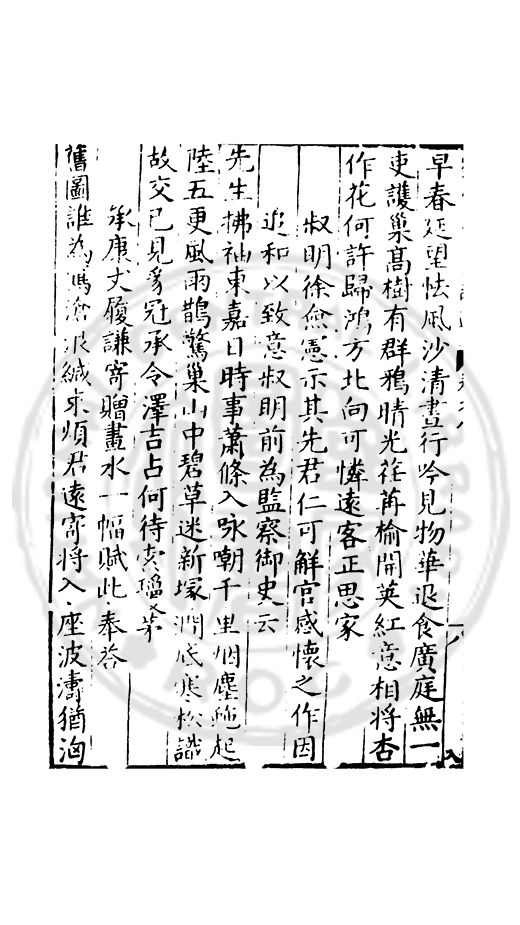 早春延望怯風沙清晝行吟見物華退食廣庭無一
吏護巢高樹有群鴉晴光在苒榆開莢紅意相將杏
作花何許歸鴻方北向可憐遠客正思家
叔明徐僉憲示其先君仁可解官感懷之作因
追和以致意叔明前為監察御史云
先生拂袖東嘉日時事蕭條入咏嘲千里烟塵隨起
陸五更風雨鵲驚巢山中碧草迷新塚澗底寒松識
故交已見豸冠承令澤吉占何待索瓊茅
承康丈履謙寄贈畫水一幅賦此奉答
舊圖誰為馮滄浪緘來煩君遠寄將入座波濤猶洶